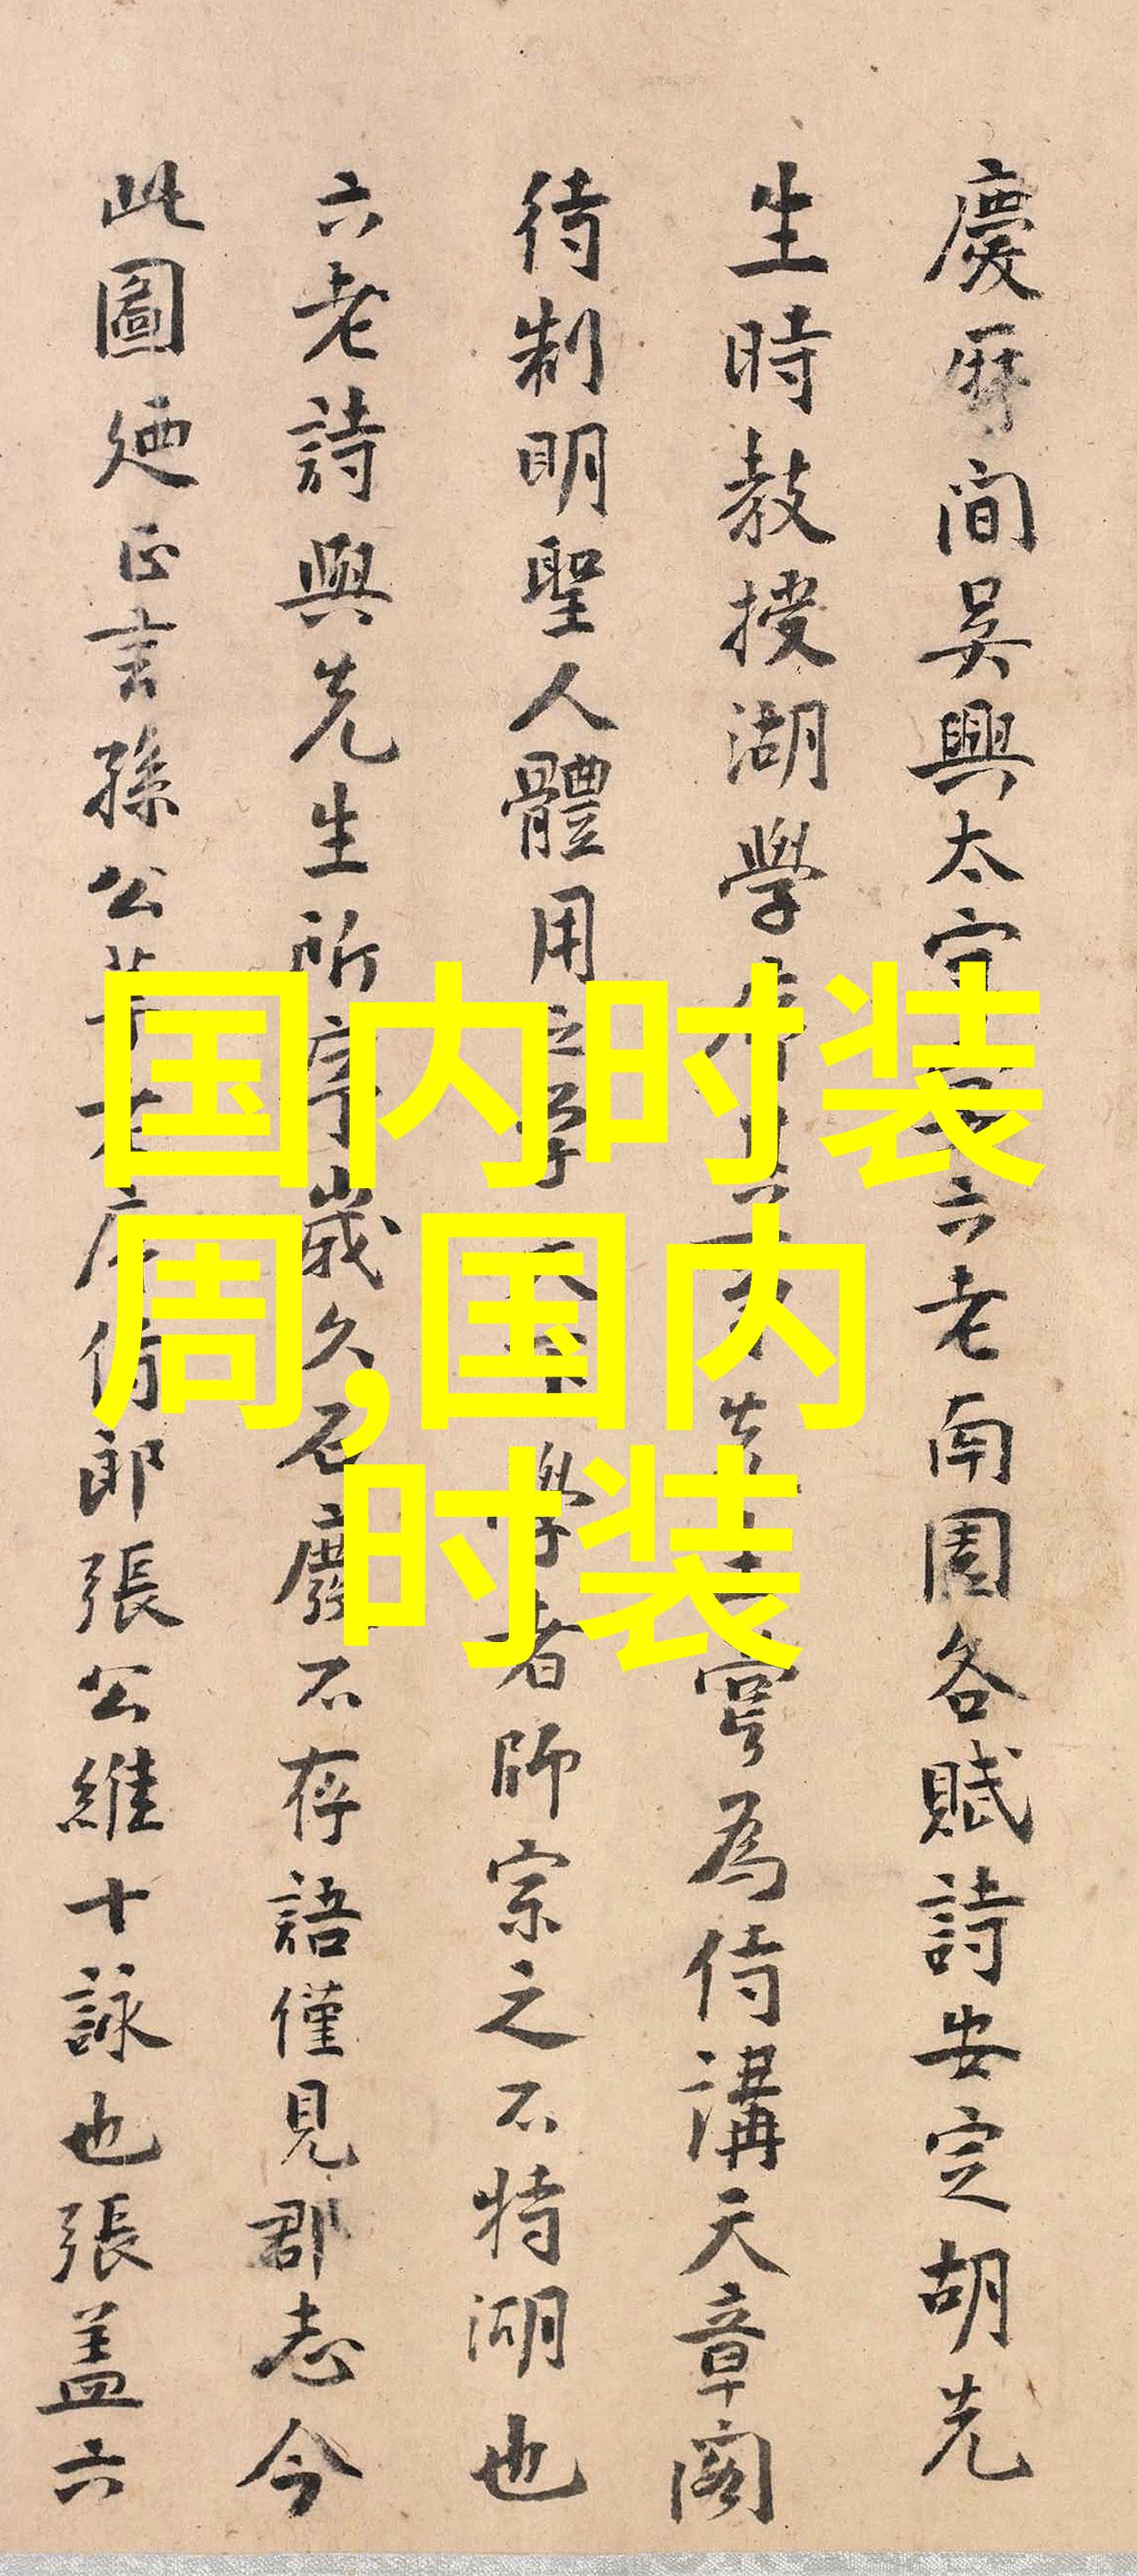 慶厤間吳興太守六老南園各賦詩安定胡先
生時教授湖學為侍講天章閣
待制明聖人體用之學學者師宗之不特湖也
六老詩與先生所序歲久石廢不存語僅見郡志今
此圖廼正言孫公侍郎張公維十詠也張蓋六
国内时装
周,国内
时装